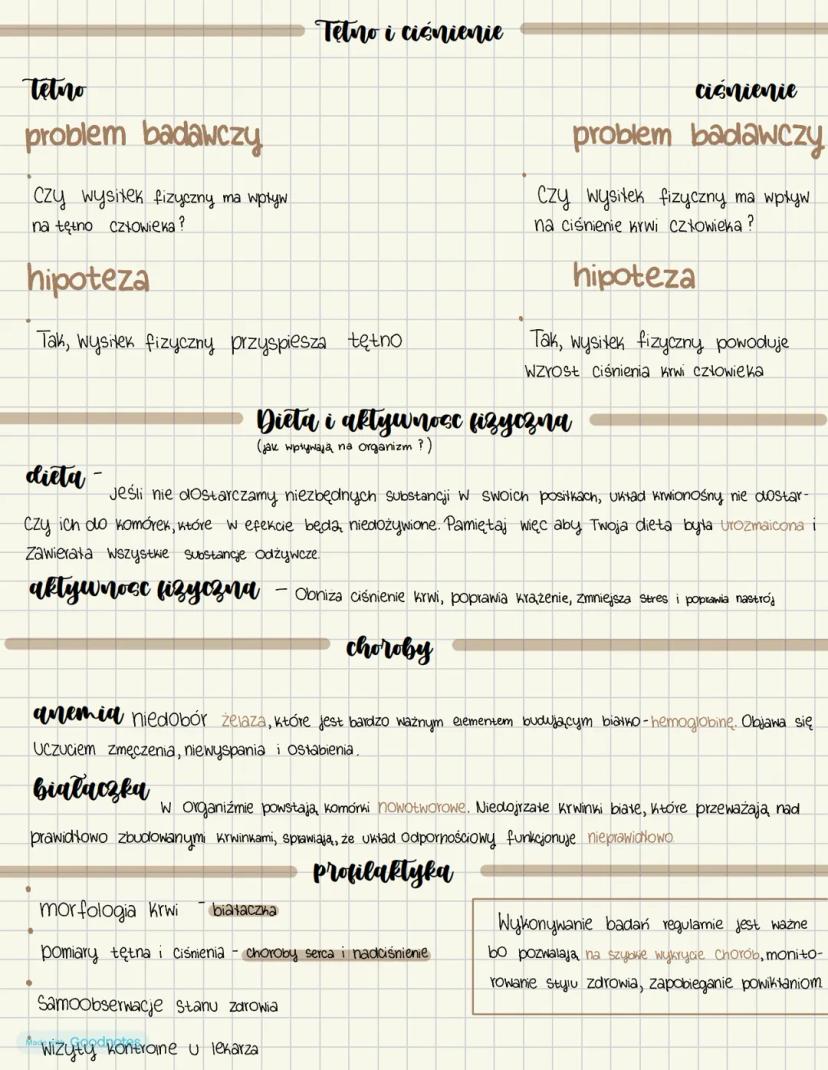 Tętno i ciśnienie
tętno
ciśnienie
problem badawczy
problem badawczy
Czy wysiłek fizyczny ma wpływ
na tętno człowieka?
Czy wysiłek fizyczny ma wpływ
na ciśnienie krwi człowieka?
hipoteza
hipoteza
Tak, wysiłek fizyczny przyspiesza tętno
Tak, wysiłek fizyczny powoduje
wzrost ciśnienia krwi człowieka
Dieta i aktywnosc fizyczna
(jak wpływają na organizm?)
dieta -
Jeśli nie dostarczamy niezbędnych substancji w swoich posiłkach, układ krwionośny nie dostar-
czy ich do komórek, które w efekcie będą niedożywione. Pamiętaj więc aby Twoja dieta była urozmaicona i
zawierała wszystkie substancje odżywcze.
aktywnosc fizyczna - Obniża ciśnienie krwi, poprawia krążenie, zmniejsza stres i poprawia nastrój
choroby
anemia niedobór żelaza, które jest bardzo ważnym elementem budującym białko - hemoglobinę. Objawa się
uczuciem zmęczenia, niewyspania i osłabienia.
białaczka
w organiźmie powstają komórki nowotworowe. Niedojrzałe krwinki białe, które przeważają nad
prawidłowo zbudowanymi krwinkami, sprawiają, że układ odpornościowy funkcjonuje nieprawidłowo.
profilaktyka
morfologia krwi - białaczka
pomiary tętna i ciśnienia - choroby serca i nadciśnienie
samoobserwacje stanu zdrowia
wizyty kontrolne u lekarza
Wykonywanie badań regularnie jest ważne
bo pozwalają na szybkie wykrycie chorób, monito-
rowanie stylu zdrowia, zapobieganie powikłaniom
Made with Goodnotes